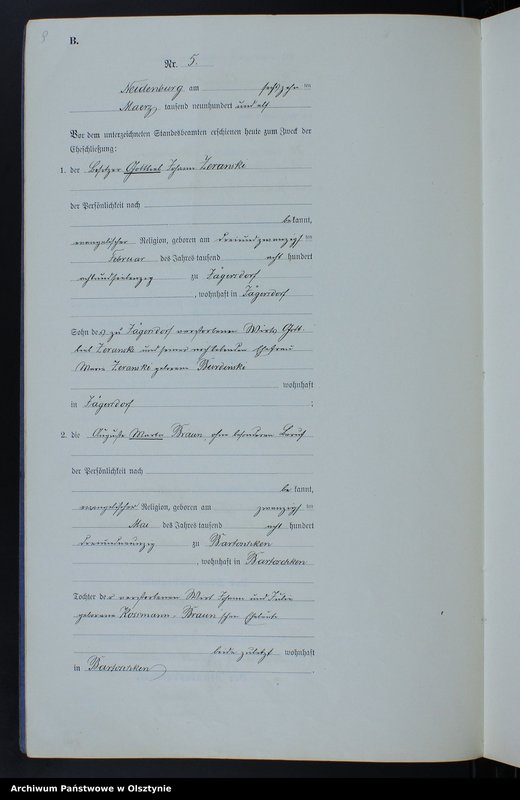 B.
Nr. 5.
Neidenburg am sechszehn ten
Maerz tausend neunhundert und elf
Vor dem unterzeichneten Standesbeamten erschienen heute zum Zweck der
Eheschließung:
1. der Besitzer Gottlieb Johann Zeranski
der Persönlichkeit nach
bekannt,
evangelischer Religion, geboren am dreiundzwanzigsten
Februar des Jahres tausend acht hundert
zu Jägersdorf
, wohnhaft in Jägersdorf
Sohn des zu Jägersdorf verstorbenen Wirts Gott
lieb Zeranski und seiner noch lebenden Ehefrau
Marie Zeranski geborene
wohnhaft
in Jägersdorf ;
2. die Auguste Marta Braun, ohne besonderen Beruf
der Persönlichkeit nach
bekannt,
evangelischer Religion, geboren am zwanzigsten
Mai des Jahres tausend acht hundert
dreiundneunzig zu Bartoschken
, wohnhaft in Bartoschken
Tochter der verstorbenen Wirt Johann und Julie
geborene Rossmann - Braun'schen Eheleute
beide zuletzt wohnhaft
in Bartoschken .
Archiwum Państwowe w Olsztynie